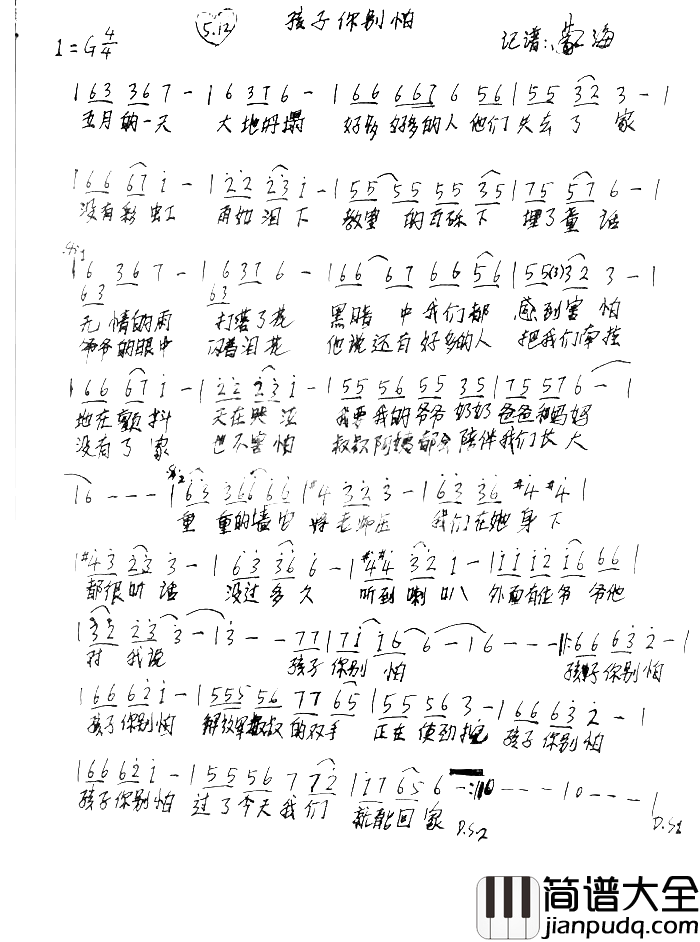 5.12 孩子你别怕
1=G 4/4 记谱: 海
1 6 3 3 6 7 - | 6 3 7 6 - | 6 6 6 6 7 6 5 6 | 5 5 3 2 3 - |
五月的一天 大地坍塌 好多好多的人他们失去了家
1 6 6 6 7 i - | 2 2 2 3 i - | 5 5 5 5 5 5 3 5 | 7 5 5 7 6 - |
没有彩虹 雨如泪下 教室的瓦砾下 埋了童话
6 3 6 7 - | 6 3 7 6 - | 6 6 6 7 6 6 5 6 | 5 5 (3) 3 2 3 - |
6 3 6 3
无情的雨 打落了花 黑暗中我们都感到害怕
爷爷的眼中 闪着泪花 他说还有好多的人把我们牵挂
1 6 6 6 7 i - | 2 2 2 3 i - | 5 5 5 6 5 5 3 5 | 7 5 5 7 6 - |
地在颤抖 天在哭泣 我要我的爷爷奶奶爸爸和妈妈
没有了家 也不害怕 叔叔阿姨都会陪伴我们长大
1 6 - - - | 6 3 3 6 6 6 6 | #4 3 2 3 - | 6 3 3 6 #4 #4 |
重重的墙 老师 我们在她身下
| #4 3 2 3 3 - | 6 3 3 6 6 - | #4 #4 3 2 1 - | 1 1 1 2 1 6 6 6 |
都很听话 没过多久 听到喇叭 外面有位爷爷他
| 3 2 2 3 3 - | 3 - - 7 7 | 7 i i 6 6 - | 6 - - - |: 6 6 6 3 2 - |
对我说 孩子你别怕 孩子你别怕
1 6 6 6 2 i - | 5 5 5 5 6 7 7 6 5 | 5 5 5 6 3 - | 6 6 6 3 2 - |
孩子你别怕 解放军叔叔的双手 正在使劲挖 孩子你别怕
1 6 6 6 2 i - | 5 5 5 5 6 7 7 2 | i 7 6 5 6 - :| 0 - - - | 0 - - - |
孩子你别怕 过了今天我们就能回家 D.S2 D.S1
简谱大全
jianpudq.com